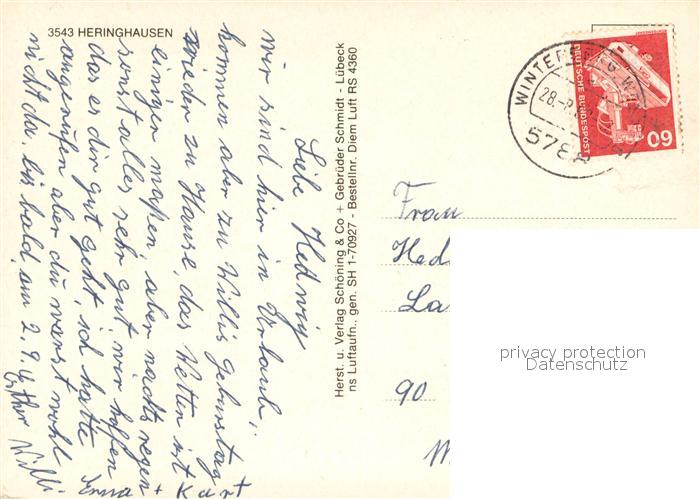 3543 HERINGHAUSEN
Liebe Hedwig
wir sind hier in Urlaub,
kommen aber zu Willis Geburtstag
wieder zu Hause, das Wetter ist
einiger maßen, aber nachts regen
sonst alles sehr gut wir hoffen
das es dir gut geht, ich hatte
angerufen aber du warst wohl
nicht da. bis bald, am 2.9.
Erna + Kurt
Willi
Herst. u. Verlag Schöning & Co + Gebrüder Schmidt - Lübeck
ns Luftaufn., gen. SH 1-70927 - Bestellnr. Diem Luft RS 4360
WINTERBERG
28.
5788
DEUTSCHE BUNDESPOST
60
Frau
Hed
La
90
privacy protection
Datenschutz